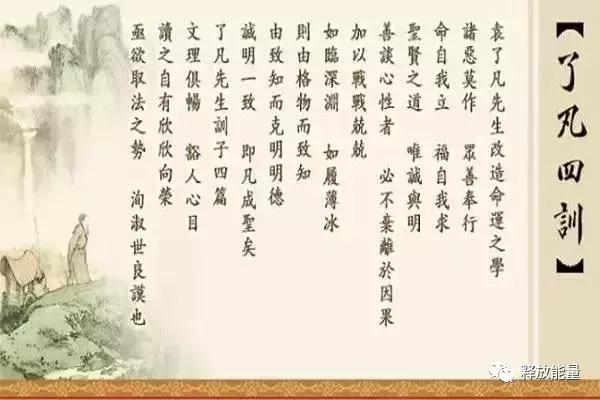 【了凡四訓】
袁了凡先生改造命運之學
諸惡莫作 眾善奉行
命自我立 福自我求
聖賢之道 唯誠與明
善談心性者 必不棄離於因果
加以戰戰兢兢
如臨深淵 如履薄冰
則由格物而致知
由致知而克明明德
誠明一致 即凡成聖矣
了凡先生訓子四篇
文理俱暢 豁人心目
讀之自有欣欣向榮
亟欲取法之勢 洵淑世良謨也
释放能量